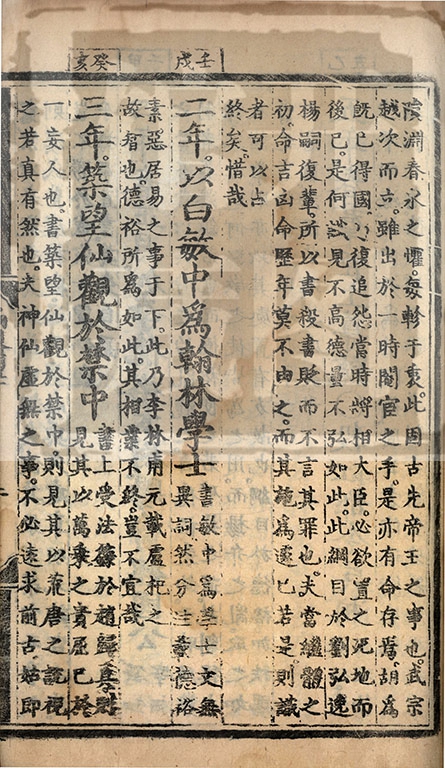 壬戌
癸亥
淵春氷之懼每軫于衷此固古先帝王之事也武宗
越次而古雖出於一時閹宦之手是亦有命存焉胡爲
旣已得國乃復追怨當時將相大臣必欲置之死地而
後已是何識見不高德量不弘如此此綱目於劉弘逸
楊嗣復輩所以書殺書貶而不言其罪也夫當繼體之
初命吉凶命歷年莫不由之而其施爲遽已若是則識
者可以占
終矣惜哉
二年以白敏中爲翰林學士
書敏中爲學士史無
異詞然分注著德裕
素惡居易之事于下此乃李林甫元載盧杞之
故智也德裕所爲如此其相業不終豈不宜哉
三年築望仙觀於禁中
書上受法籙於趙歸眞則
見其以萬乘之貴屈已於
一妄人也書築望仙觀於禁中則見其以荒唐之說視
之若真有然也夫神仙虛無之事不必遠求前古姑即